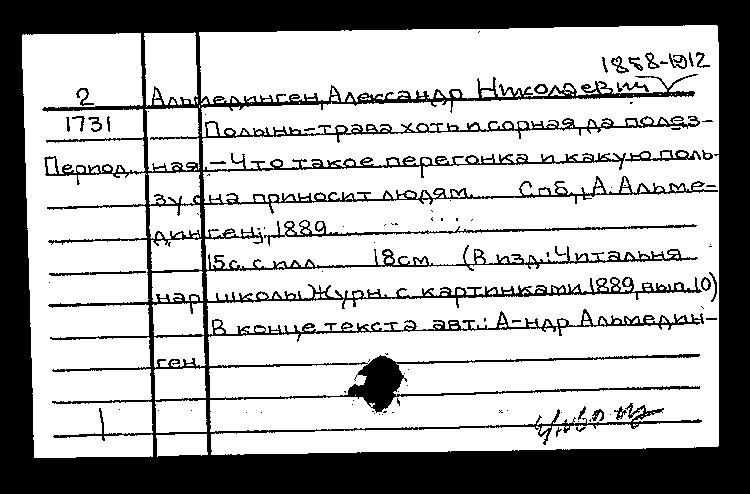 1858-1912
2 Альмединген, Александр Николаевич
1731 Полынь-трава хоть и сорная, да полез-
Период. ная. - Что такое перегонка и какую поль-
зу она приносит людям. Спб., А. Альме-
динген, 1889.
15с. с илл. 18см. (В изд.: Читальня
нар школы Журн. с картинками. 1889, вып. 10)
В конце текста авт.: А-ндр Альмедин-
ген.